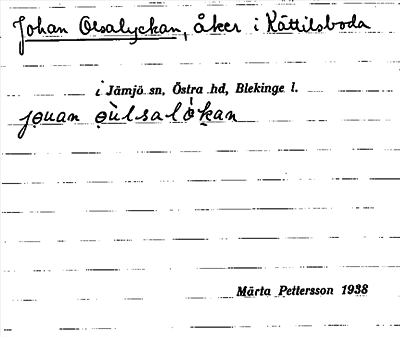 Johan Olsalyckan, åker i Kättilsboda
i Jämjö sn, Östra hd, Blekinge l.
jǫuan ǫ̀ulsalø̀kan
Märta Pettersson 1938